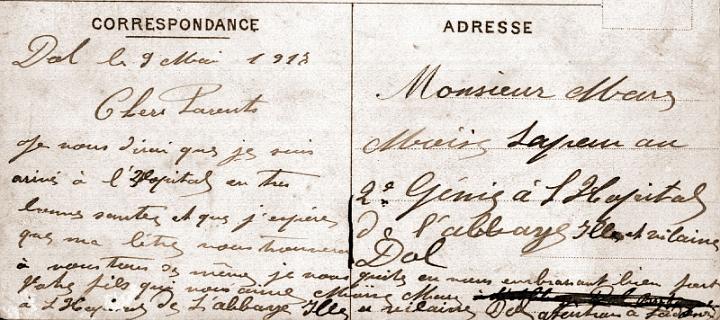 CORRESPONDANCE
Dol le 9 Mai 1915
Chers Parents
Je vous dirai que je suis
arivé à l'Hopital en tres
bonne santée et que j'espère
que ma lètre vous trouvera
à vous tous de même je vous
quite en vous embrasant bien fort
Votre fils qui vous aime Moïse Marc
à L'Hopital de L'abbaye Ille et vilaine Dol
atention à L'adresse
ADRESSE
Monsieur Marc
Moïse Sapeur au
2e Génie à L'Hopital
de l'abbaye Ille et vilaine
Dol